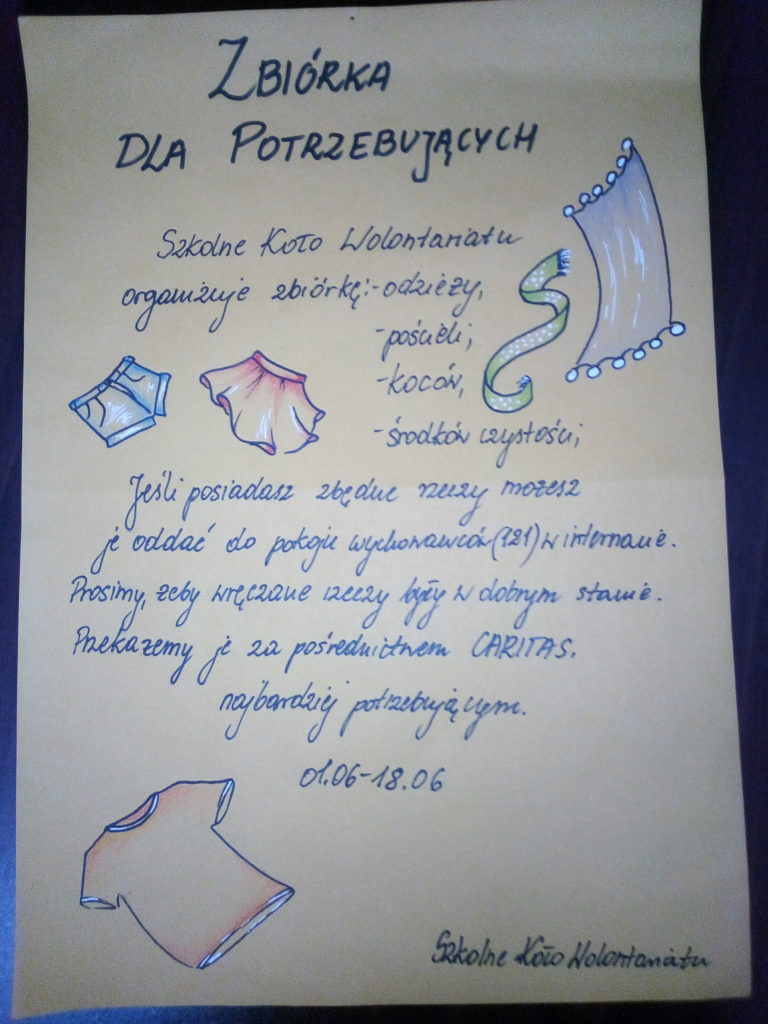 ZBIÓRKA
DLA POTRZEBUJĄCYCH
Szkolne Koło Wolontariatu
organizuje zbiórkę:-odzieży,
-pościeli,
-koców,
-środków czystości,
Jeśli posiadasz zbędne rzeczy możesz
je oddać do pokoju wychowawców (121) w internacie.
Prosimy, żeby wręczane rzeczy były w dobrym stanie.
Przekażemy je za pośrednictwem CARITAS.
najbardziej potrzebującym.
01.06-18.06
Szkolne Koło Wolontariatu